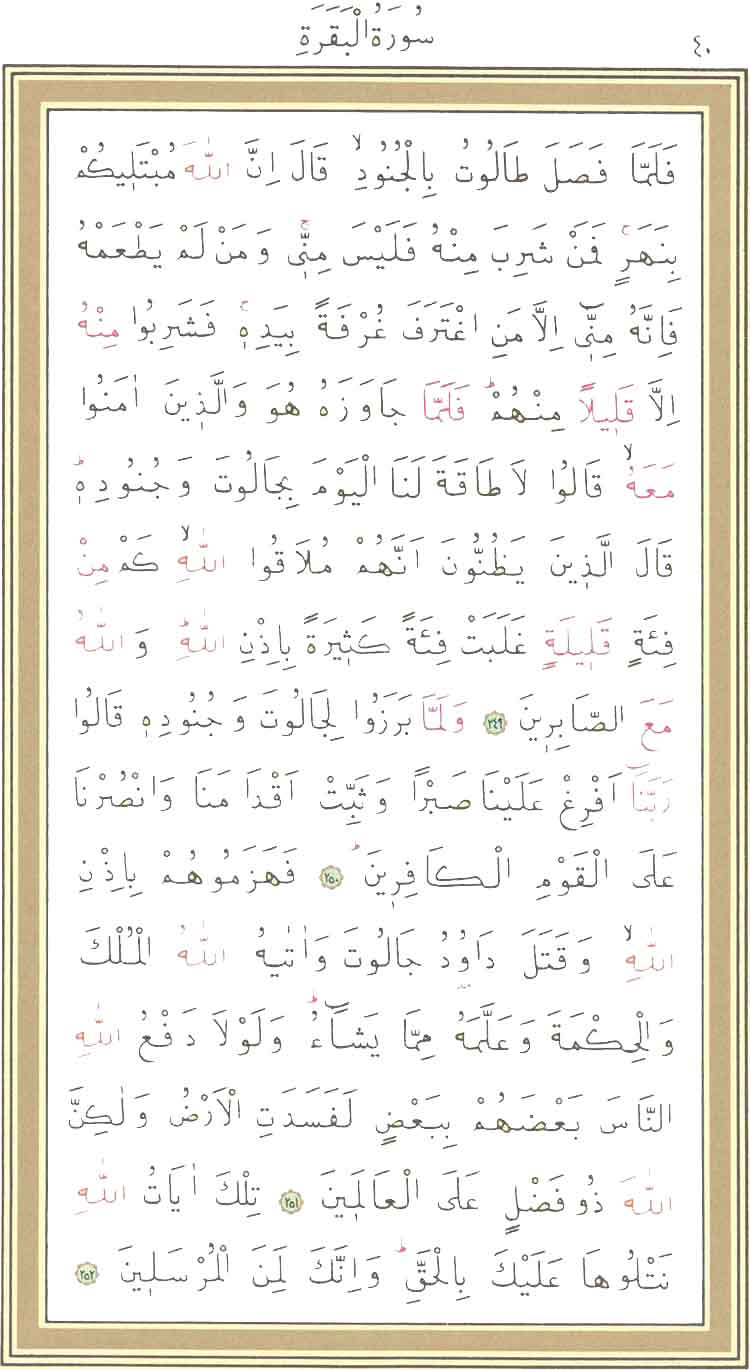 ٤٠
سُورَةُ الْبَقَرَةِ
فَلَمَّا فَصَلَ طَالُوتُ بِالْجُنُودِۙ قَالَ اِنَّ اللّٰهَ مُبْتَلٖيكُمْ
بِنَهَرٍۚ فَمَنْ شَرِبَ مِنْهُ فَلَيْسَ مِنّٖيۚ وَمَنْ لَمْ يَطْعَمْهُ
فَاِنَّهُ مِنّٖٓي اِلَّا مَنِ اغْتَرَفَ غُرْفَةً بِيَدِهٖۚ فَشَرِبُوا مِنْهُ
اِلَّا قَلٖيلاً مِنْهُمْؕ فَلَمَّا جَاوَزَهُ هُوَ وَالَّذٖينَ اٰمَنُوا
مَعَهُۙ قَالُوا لَا طَاقَةَ لَنَا الْيَوْمَ بِجَالُوتَ وَجُنُودِهٖؕ
قَالَ الَّذٖينَ يَظُنُّونَ اَنَّهُمْ مُلَاقُوا اللّٰهِۙ كَمْ مِنْ
فِئَةٍ قَلٖيلَةٍ غَلَبَتْ فِئَةً كَثٖيرَةً بِاِذْنِ اللّٰهِؕ وَاللّٰهُ
مَعَ الصَّابِرٖينَ ﴿٢٤٩﴾ وَلَمَّا بَرَزُوا لِجَالُوتَ وَجُنُودِهٖ قَالُوا
رَبَّنَٓا اَفْرِغْ عَلَيْنَا صَبْرًا وَثَبِّتْ اَقْدَامَنَا وَانْصُرْنَا
عَلَى الْقَوْمِ الْكَافِرٖينَؕ ﴿٢٥٠﴾ فَهَزَمُوهُمْ بِاِذْنِ
اللّٰهِۙ وَقَتَلَ دَاوُدُ جَالُوتَ وَاٰتٰيهُ اللّٰهُ الْمُلْكَ
وَالْحِكْمَةَ وَعَلَّمَهُ مِمَّا يَشَٓاءُؕ وَلَوْلَا دَفْعُ اللّٰهِ
النَّاسَ بَعْضَهُمْ بِبَعْضٍ لَفَسَدَتِ الْاَرْضُ وَلٰكِنَّ
اللّٰهَ ذُو فَضْلٍ عَلَى الْعَالَمٖينَ ﴿٢٥١﴾ تِلْكَ اٰيَاتُ اللّٰهِ
نَتْلُوهَا عَلَيْكَ بِالْحَقِّؕ وَاِنَّكَ لَمِنَ الْمُرْسَلٖينَ ﴿٢٥٢﴾